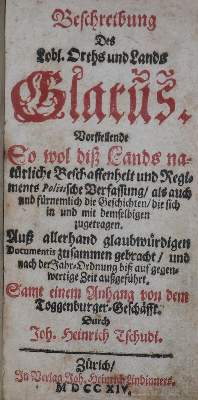 Beschreibung
Des
Lobl. Orths und Lands
Glarus.
Vorstellende
So wol diß Lands na-
türliche Beschaffenheit und Regi-
ments Politische Verfassung / als auch
und fürnemlich die Geschichten / die sich
in und mit demselbigen
zugetragen.
Auß allerhand glaubwürdigen
Documentis zusammen gebracht / und
nach der Jahr-Ordnung biß auf gegen-
wertige Zeit außgeführt.
Samt einem Anhang von dem
Toggenburger-Geschäfft.
Durch
Joh. Heinrich Tschudi.
Zürich /
In Verlag Joh. Heinrich Lindinners.
MDCCXIV.